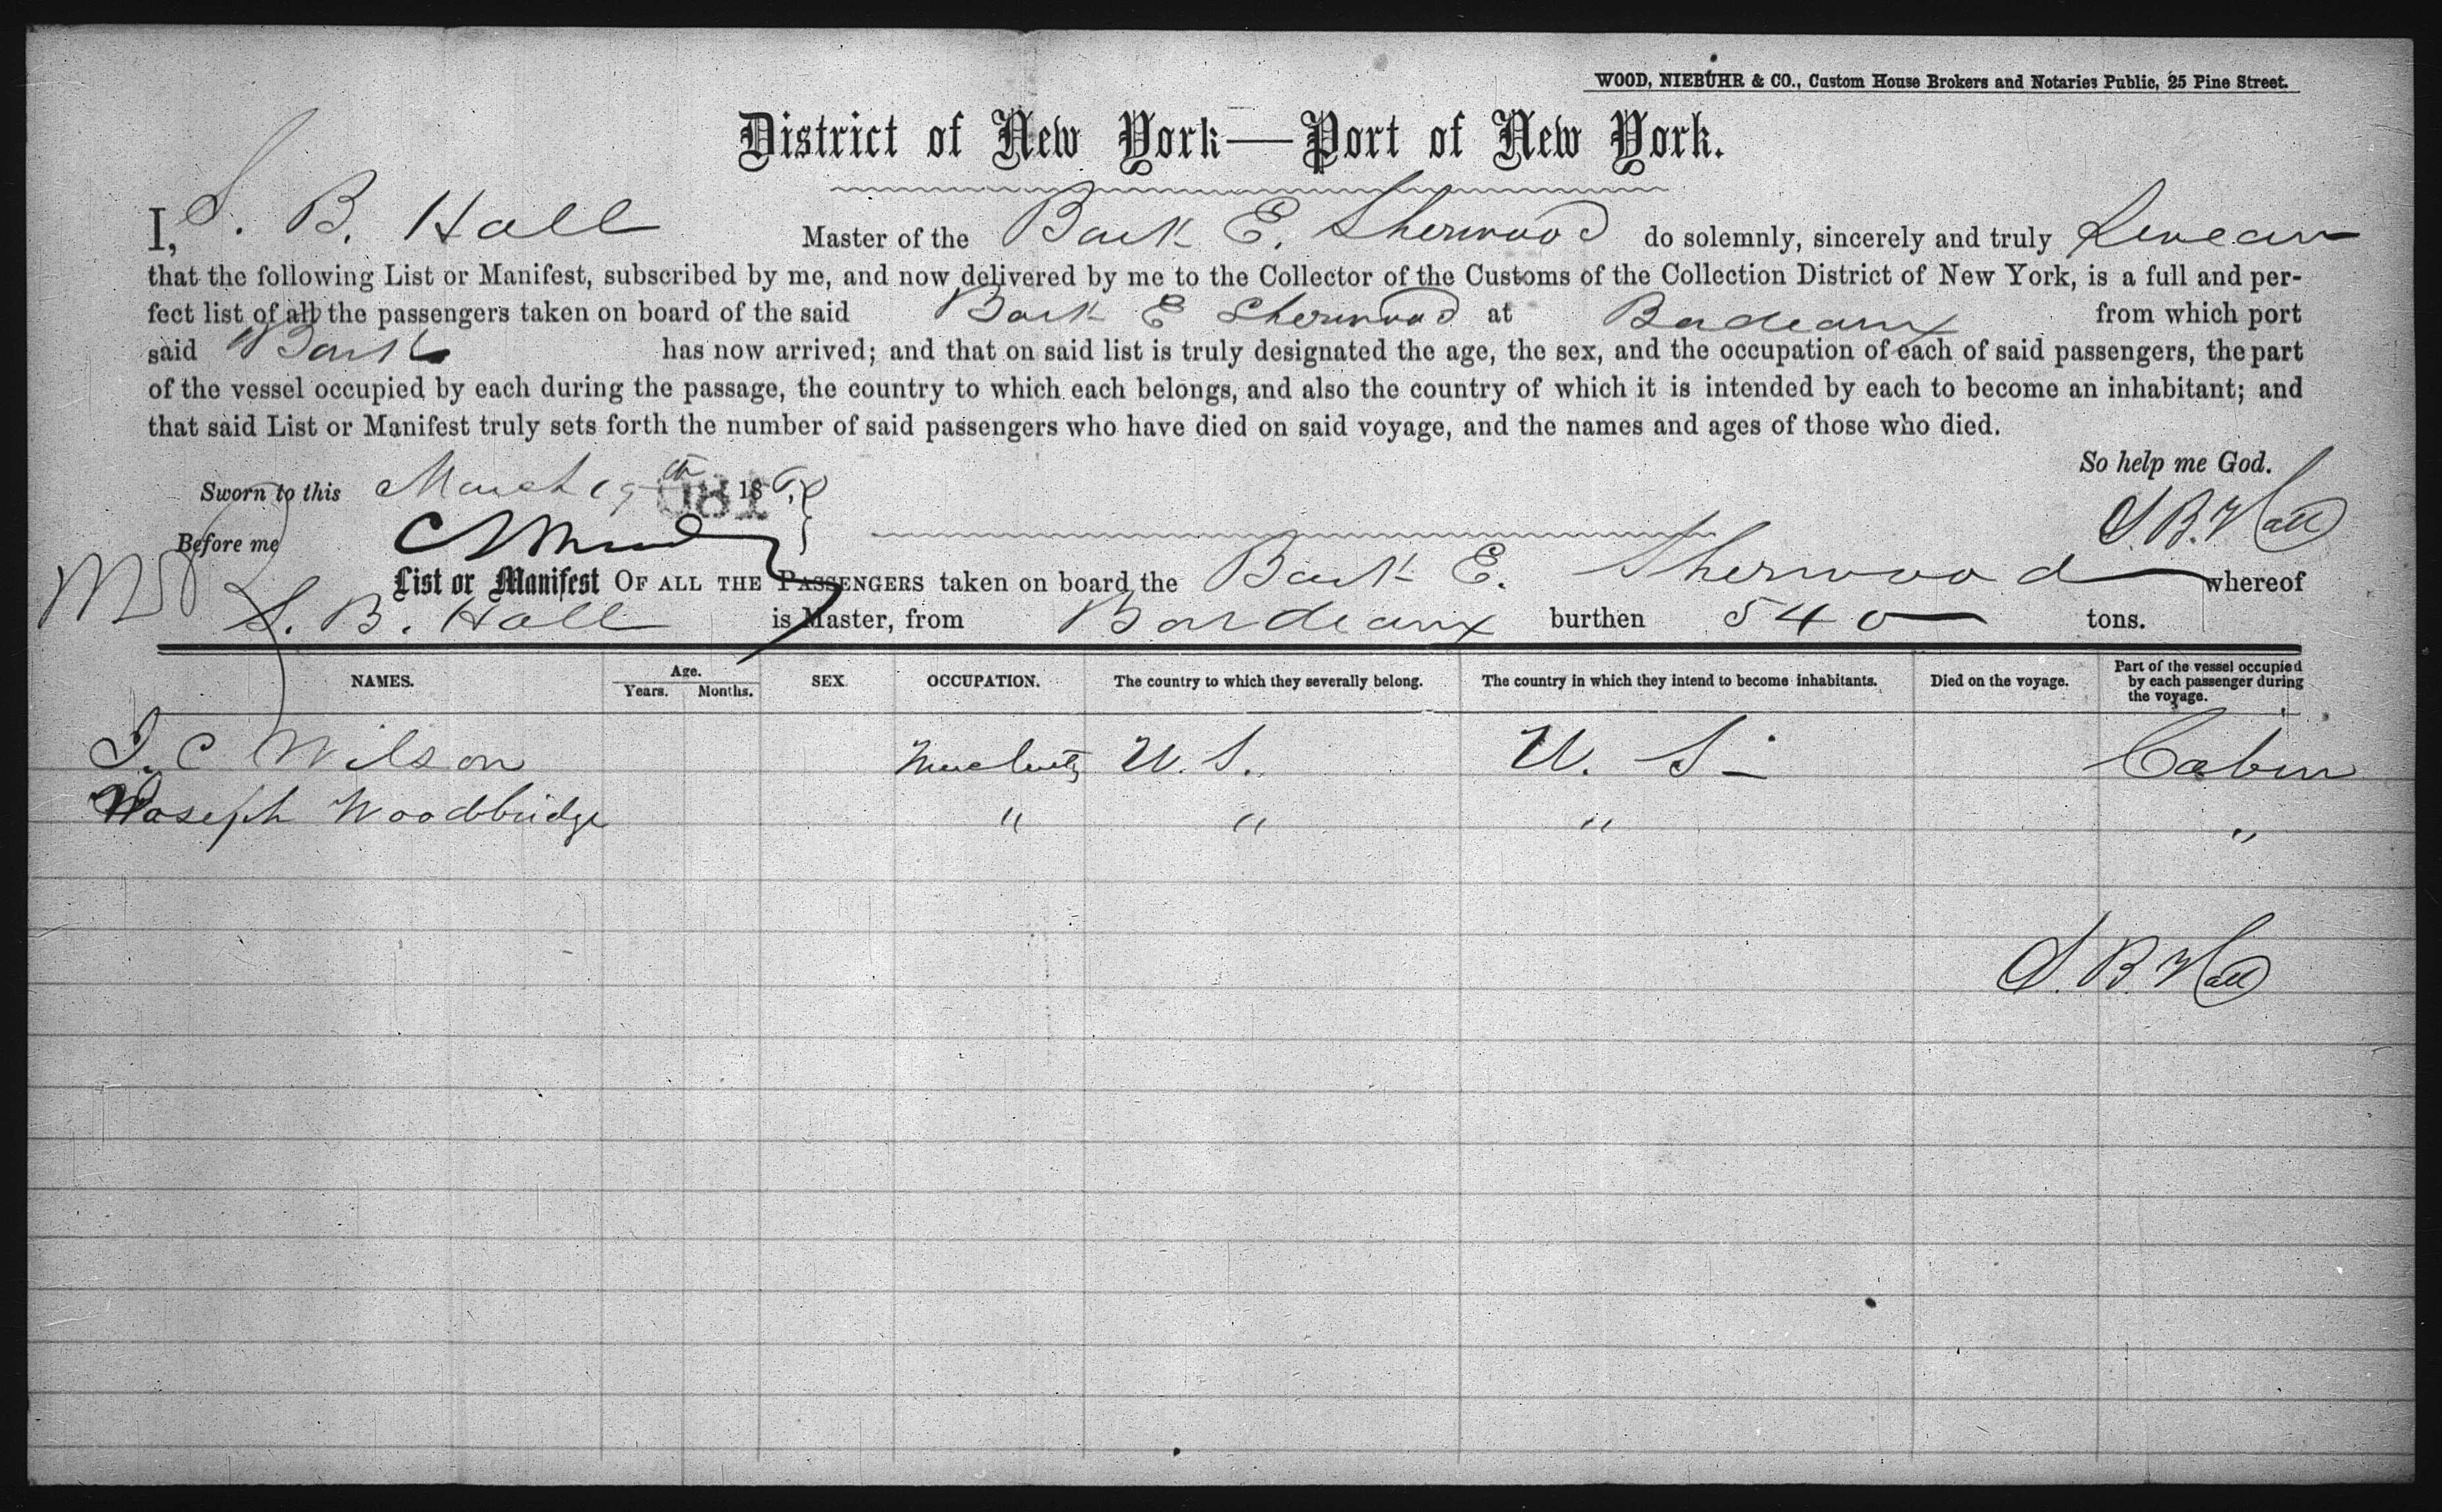 WOOD, NIEBUHR & CO., Custom House Brokers and Notaries Public, 25 Pine Street.
District of New York—Port of New York.
I, S. B. Hall Master of the Bark E. Sherwood do solemnly, sincerely and truly Swear
that the following List or Manifest, subscribed by me, and now delivered by me to the Collector of the Customs of the Collection District of New York, is a full and per-
fect list of all the passengers taken on board of the said Bark E Sherwood at Bordeaux from which port
said Bark has now arrived; and that on said list is truly designated the age, the sex, and the occupation of each of said passengers, the part
of the vessel occupied by each during the passage, the country to which each belongs, and also the country of which it is intended by each to become an inhabitant; and
that said List or Manifest truly sets forth the number of said passengers who have died on said voyage, and the names and ages of those who died.
So help me God.
Sworn to this March 19th 18
S. B. Hall
Before me
List or Manifest OF ALL THE PASSENGERS taken on board the Bark E. Sherwood whereof
S. B. Hall is Master, from Bordeaux burthen 540 tons.
NAMES. Age. Years. Months. SEX. OCCUPATION. The country to which they severally belong. The country in which they intend to become inhabitants. Died on the voyage. Part of the vessel occupied by each passenger during the voyage.
C Wilson U. S. U. S. Cabin
Joseph Woodbridge " " " "
S. B. Hall